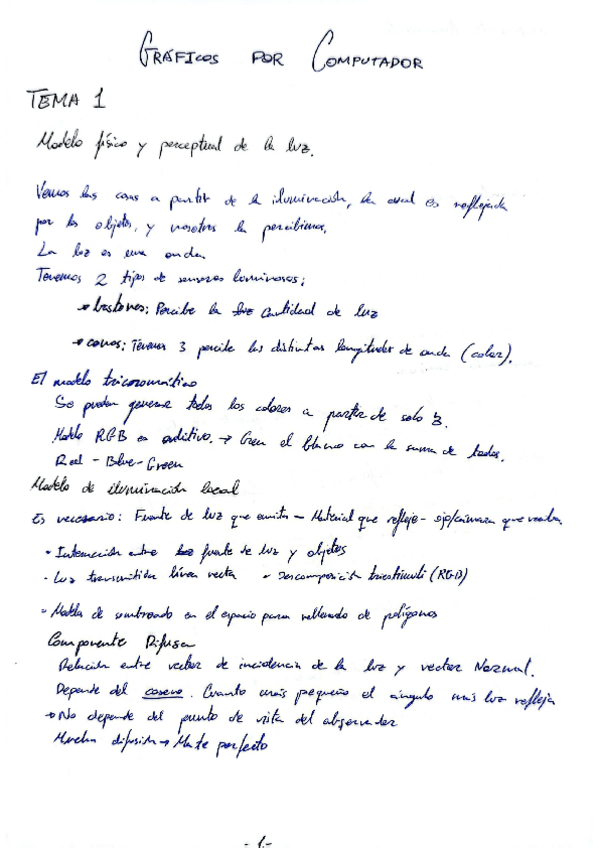 GRÁFICOS POR COMPUTADOR
TEMA 1
Modelo físico y perceptual de la luz.
Vemos las cosas a partir de la iluminación, la cual es reflejada
por los objetos, y nosotros la percibimos.
La luz es una onda.
Tenemos 2 tipos de sensores luminosos:
bastones: Percibe la cantidad de luz
conos: Tenemos 3 percibe las distintas longitudes de onda (color).
El modelo tricromático
Se pueden generar todos los colores a partir de solo 3.
Modelo RGB es aditivo. → Crean el blanco con la suma de todos.
Red - Blue - Green
Modelo de iluminación local
Es necesario: Fuente de luz que emita - Material que refleje - ojo/cámara que reciba
• Interacción entre fuente de luz y objetos
• Luz transmitida línea recta • Descomposición triestímuli (RGB)
• Modelo de sombreado en el espacio para rellenado de polígonos
Componente Difusa
Relación entre vector de incidencia de la luz y vector Normal.
Depende del coseno. Cuanto más pequeño el ángulo más luz refleja
→ No depende del punto de vista del observador
Mucha difusión → Mate perfecto
- 1 -